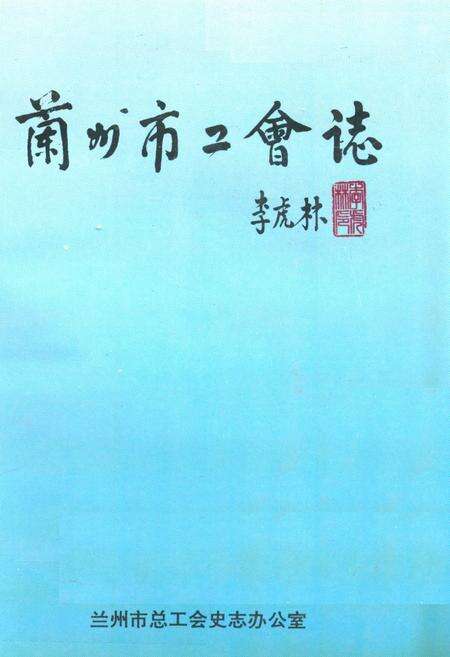 蘭州市工會誌
李虎林
兰州市总工会史志办公室